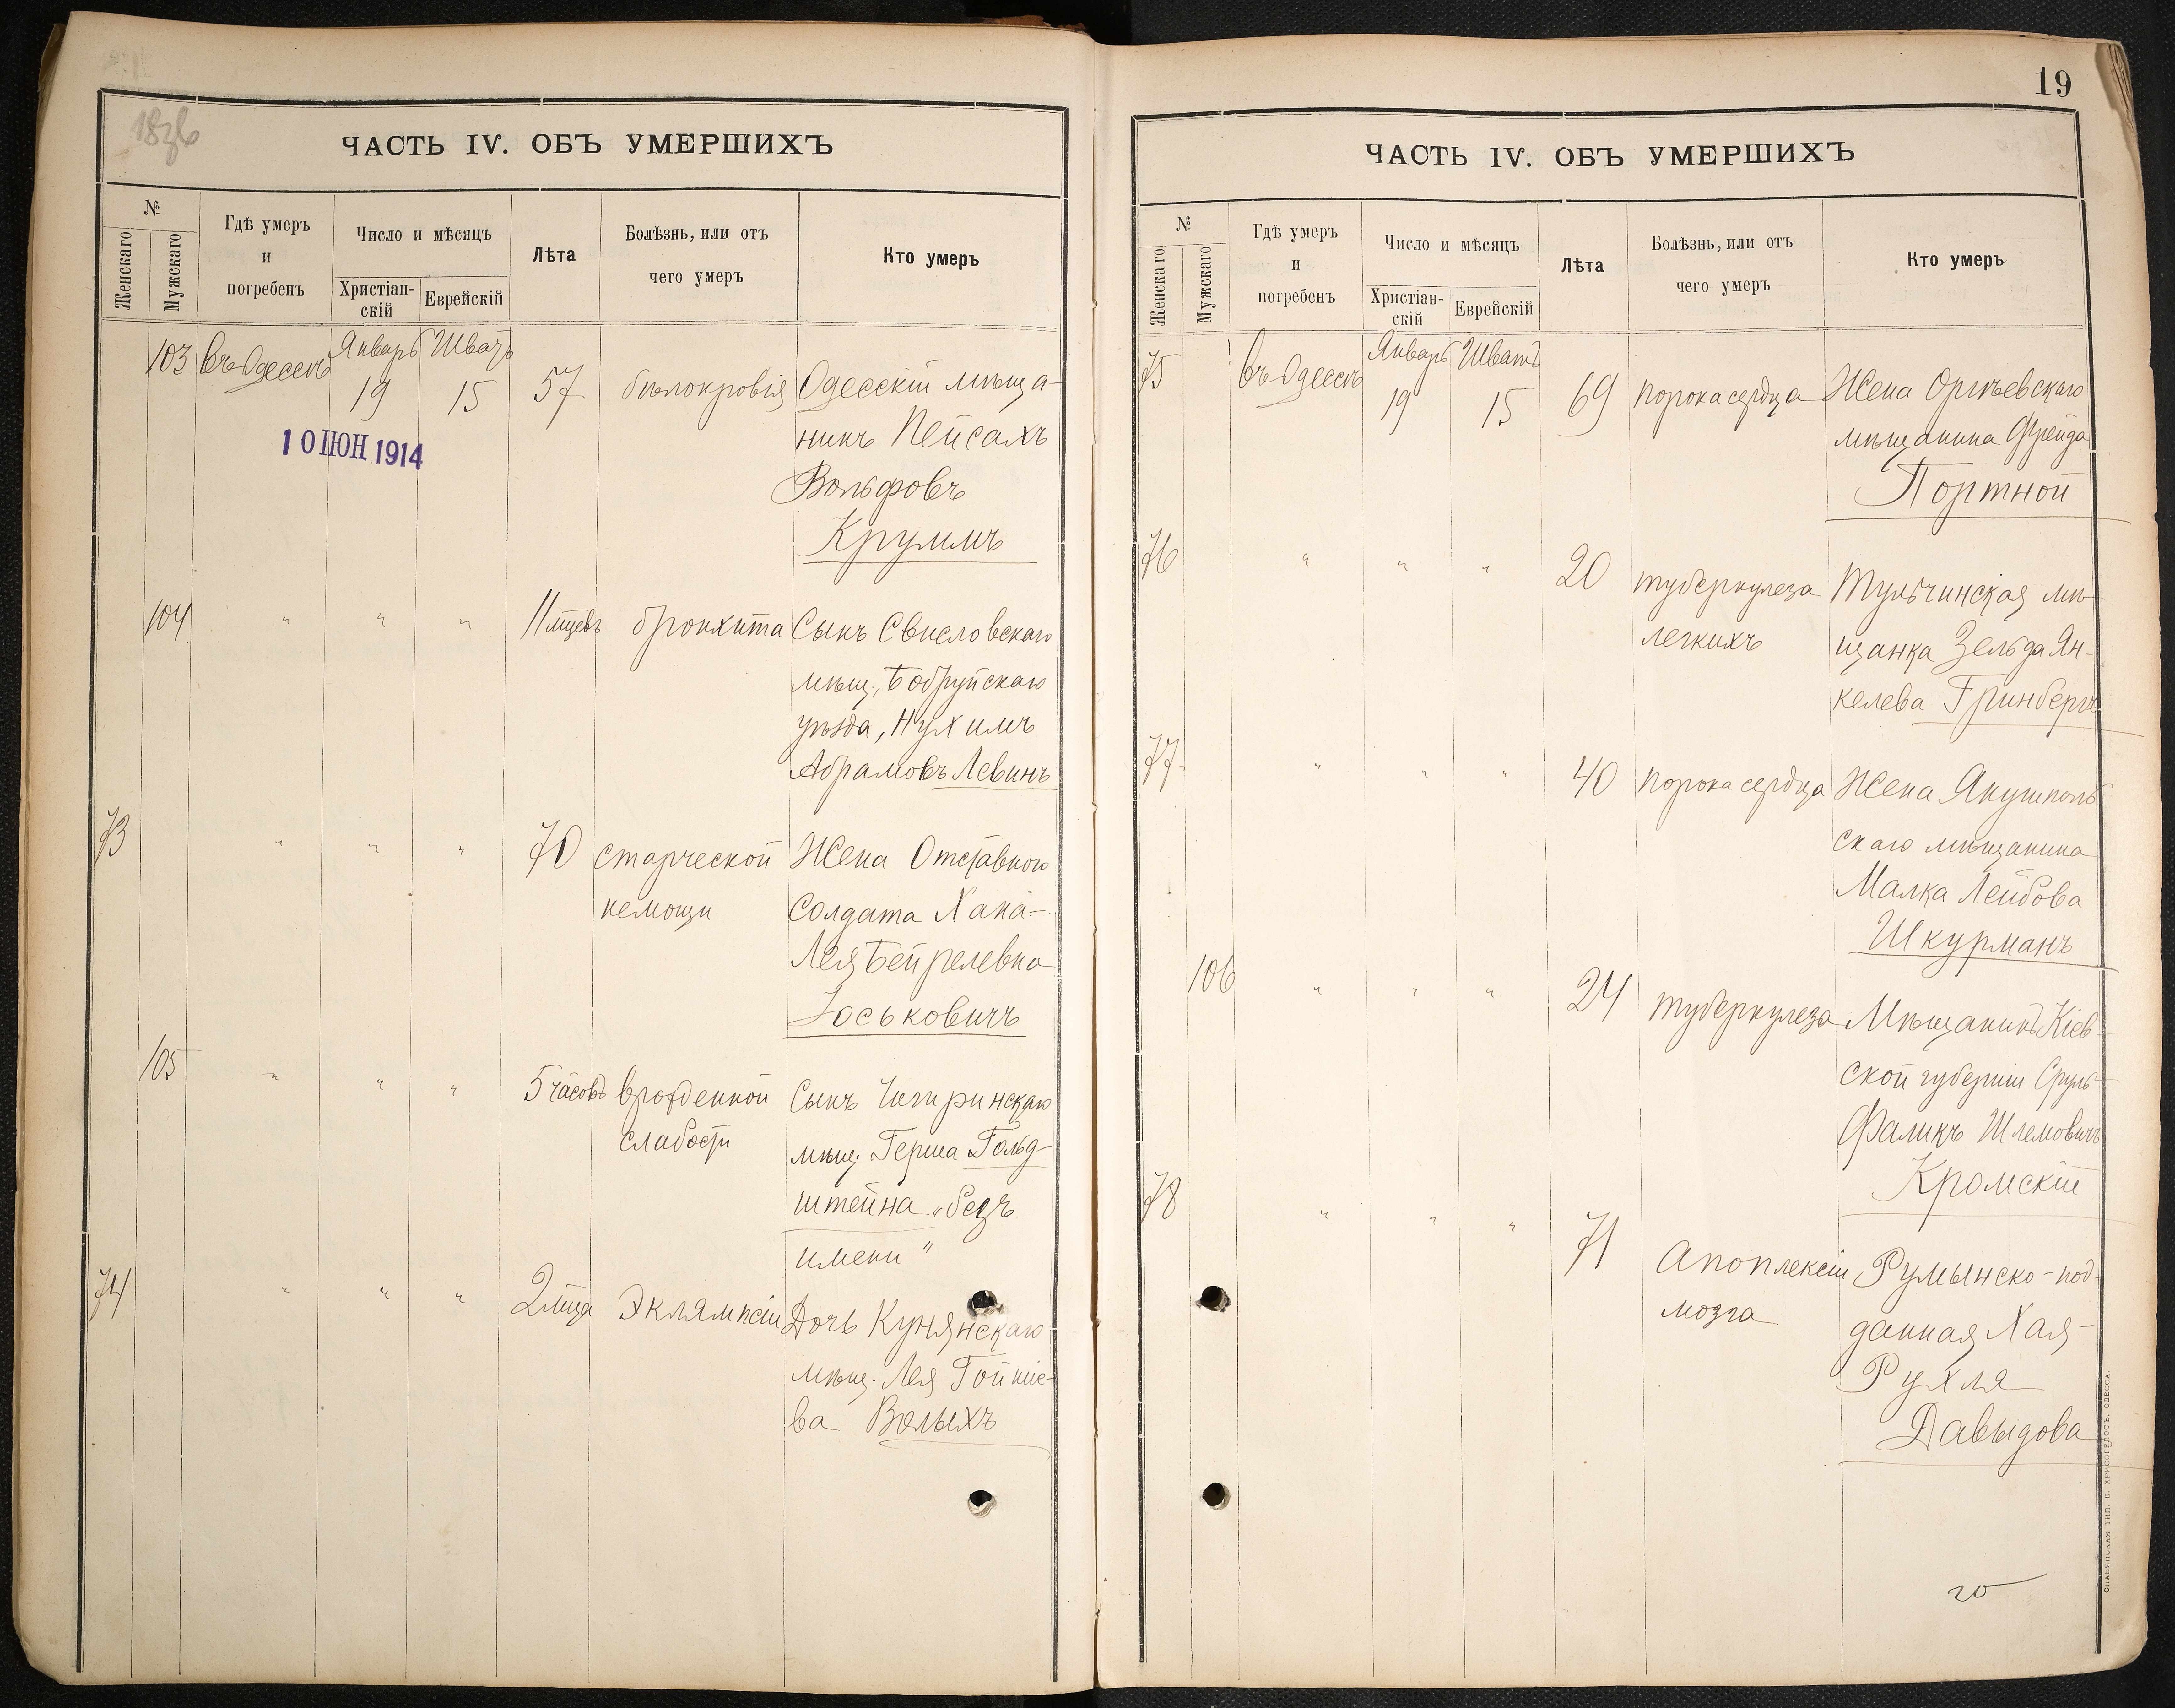 1836
ЧАСТЬ IV. ОБЪ УМЕРШИХЪ
№
Женскаго
Мужскаго
Гдѣ умеръ
и
погребенъ
Число и мѣсяцъ
Христіан-
скій
Еврейскій
Лѣта
Болѣзнь, или отъ
чего умеръ
Кто умеръ
103 Въ Одессѣ Январь 19 Шватъ 15 57 бѣлокровія Одесскій мѣща-
нинъ Пейсахъ
Вольфовъ
Круммъ
10 ІЮН 1914
104 " " " 11 мцевъ бронхита Сынъ Свисловскаго
мѣщ., Бобруйскаго
уѣзда, Нухимъ
Абрамовъ Левинъ
73 " " " 70 старческой Жена Отставного
немощи Солдата Хана-
Лея Бейрелевна
Юськовичъ
105 " " " 5 часовъ врожденной Сынъ Чигиринскаго
слабости мѣщ. Герша Гольд-
штейна "безъ
имени"
74 " " " 2 мца Эклямпсіи Дочь Кунянскаго
мѣщ. Лея
ва
19
ЧАСТЬ IV. ОБЪ УМЕРШИХЪ
№
Женскаго
Мужскаго
Гдѣ умеръ
и
погребенъ
Число и мѣсяцъ
Христіан-
скій
Еврейскій
Лѣта
Болѣзнь, или отъ
чего умеръ
Кто умеръ
75 Въ Одессѣ Январь 19 Шватъ 15 69 порока сердца Жена Оргѣевскаго
мѣщанина Фрейда
Портной
76 " " " 20 туберкулеза Тульчинская мѣ-
легкихъ щанка Зельда Ян-
келева Гринбергъ
77 " " " 40 порока сердца Жена Янушполь
скаго мѣщанина
Малка Лейбова
Шкурманъ
106 " " " 24 туберкулеза Мѣщанинъ Кіев-
ской губерніи Сруль-
Фаликъ Шлемовичъ
Кромскій
78 " " " 71 Апоплексіи Румынско-под-
мозга данная Хая-
Рухля
Давыдова
СЛАВЯНСКАЯ ТИП. Е. ХРИСОГЕЛОСЪ, ОДЕССА.